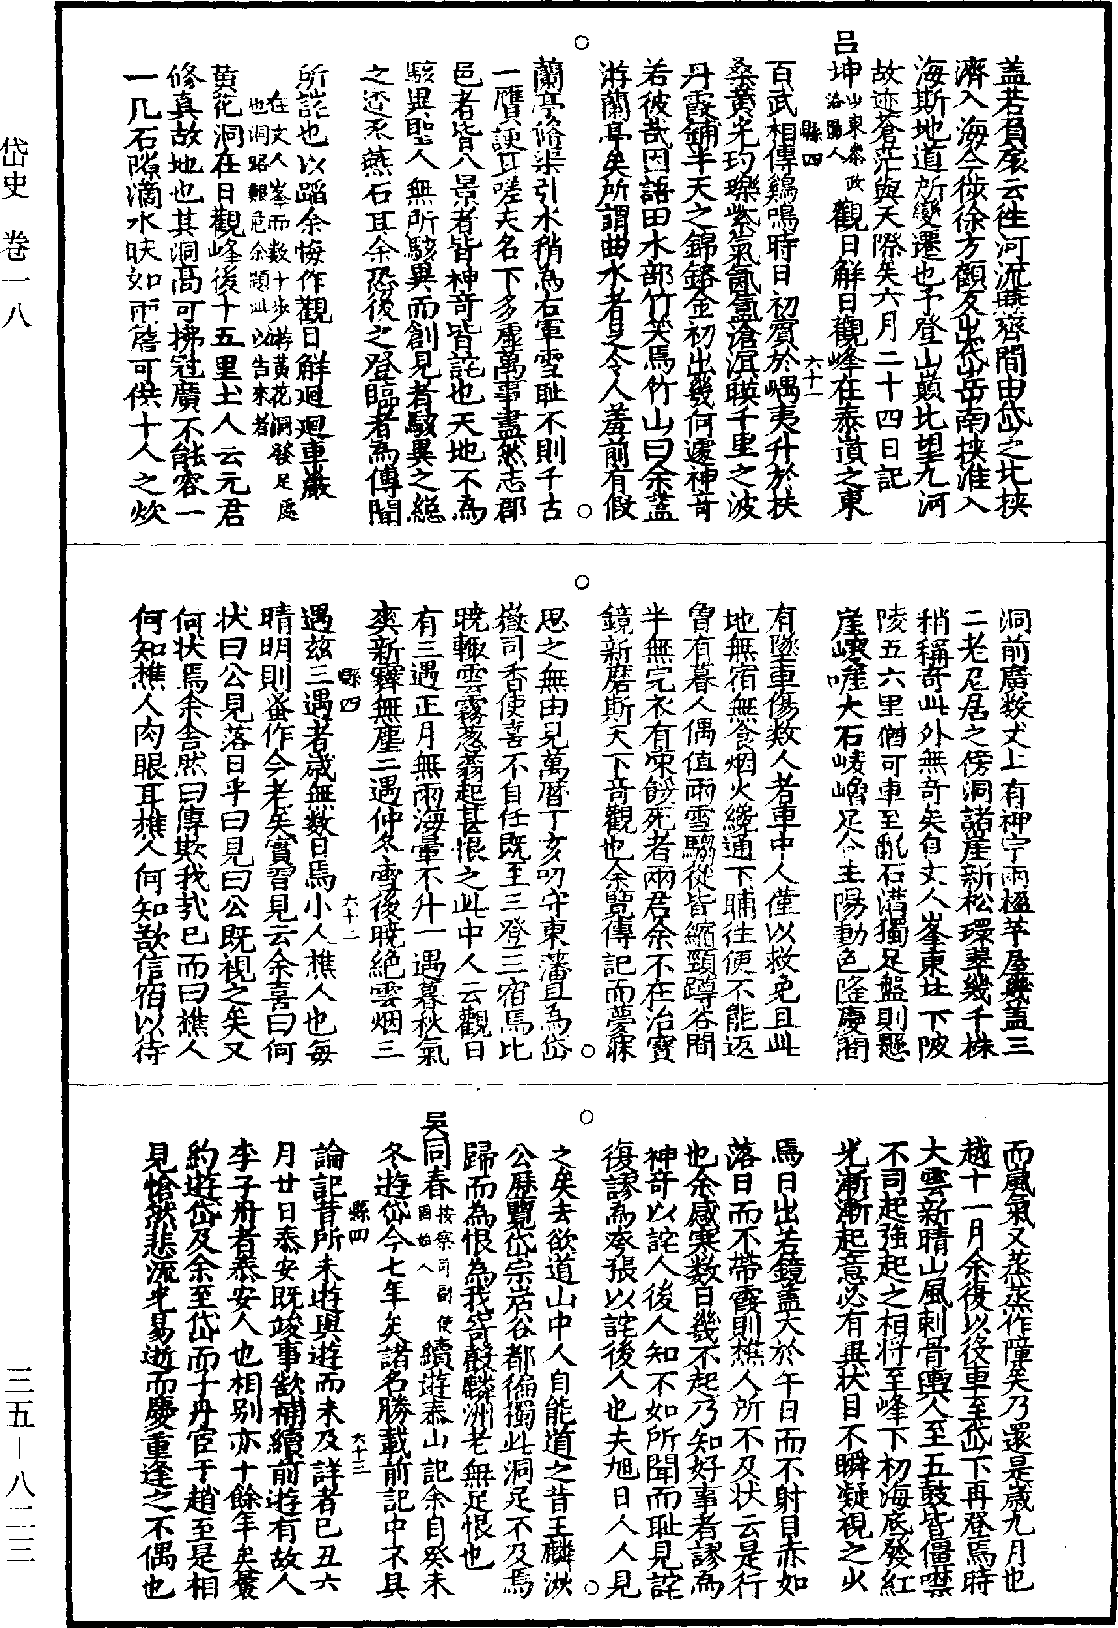 岱史 卷一八
三五－八二三
蓋若負扆云往河流燕齊間由岱之北挾
濟入海今徙徐方顧反出岱岳南挾淮入
海斯地道所變遷也予登山巔北望九河
故迹蒼茫與天際矣六月二十四日記
呂坤山東參政洛陽人 觀日解日觀峰在泰嶽之東
百武相傳鷄鳴時日初賓於嵎夷升於扶
縣四 六十一
桑黃光玓瓅紫氣氤氳滄溟暎千里之波
丹霞鋪半天之錦鎔金初出幾何遽神奇
若彼哉因語田水部竹笑焉竹山曰余蓋
游蘭亭矣所謂曲水者乏令人羞前有假
蘭亭脩渠引水稍為右軍雪耻不則千古
一贋諛耳嗟夫名下多虛萬事盡然志郡
邑者皆八景者皆神奇皆詫也天地不為
駭異聖人無所駭異而創見者駭異之絕
之逕 燕石耳余恐後之登臨者為傳聞
所詫也以蹈余悔作觀日解廻車巖
在丈人峯而數十步將黃花洞發足處
也洞路艱危余題此以告來者
黃花洞在日觀峰後十五里土人云元君
修真故地也其洞高可拂冠廣不能容一
一几石隙滴水時如雨簷可供十人之炊
洞前廣數丈上有神宇兩楹芊屋幾蓋三
二老尼居之傍洞諸崖新松環翠幾千株
稍稱奇此外無奇矣自丈人峯東北下陂
陵五六里猶可車至亂石溝獨足盤則懸
崖峻嵯大石崚嶒足令王陽動色隆慶間
有墜車傷數人者車中人僅以救免且此
地無宿無食烟火纔通下晡往便不能返
會有暮人偶值雨雪騶從皆縮頸蹲谷間
半無完衣有凍餓死者兩君余不在冶寶
鏡新磨斯天下奇觀也余覽傳記而夢寐
思之無由見萬曆丁亥叨守東藩且為岱
嶽司香使喜不自任既至三登三宿焉比
曉輙雲霧葱蓊起甚恨之此中人云觀日
有三遇正月無雨海暈不升一遇暮秋氣
爽新霽無塵二遇仲冬雪後曉絕雲烟三
縣四 六十二
遇玆三遇者歲無數日焉小人樵人也每
晴明則蚤作今老矣實習見云余喜曰何
狀曰公見落日乎曰見曰公既視之矣又
何狀焉余舍然曰傳欺我哉已而曰樵人
何知樵人肉眼耳樵人何知歆信宿以待
而風氣又蒸蒸作障矣乃還是歲九月也
越十一月余復以役車至岱下再登焉時
大雲新晴山風刺骨輿人至五鼓皆僵噤
不司起強起之相將至峰下初海底發紅
光漸漸起意必有異狀目不瞬凝視之少
焉日出若鏡蓋大於午日而不射目赤如
落日而不帶霞則樵人所不及狀云是行
也余感寒數日幾不起乃知好事者謬為
神奇以詫人後人知不如所聞而耻見詫
復謬為夸張以詫後人也夫旭日人人見
之矣去欲道山中人自能道之昔王麟洲
公歷覽岱宗岩谷都徧獨此洞足不及焉
歸而為恨為我寄聲麟洲老無足恨也
吳同春按察司副使固始人 續遊泰山記余自癸未
冬遊岱今七年矣諸名勝載前記中不具
縣四 六十三
論記昔所未遊與遊而未及詳者已丑六
月廿日泰安既竣事欲補續前遊有故人
李子舟者泰安人也相别亦十餘年矣曩
約遊岱及余至岱而子丹宦于趙至是相
見愴然悲流光易逝而慶重逢之不偶也